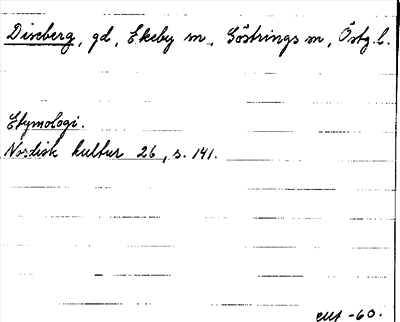 Diseberg, gd, Ekeby sn, Göstrings m, Östg. l.
Etymologi.
Nordisk kultur 26, s. 141.
-60.